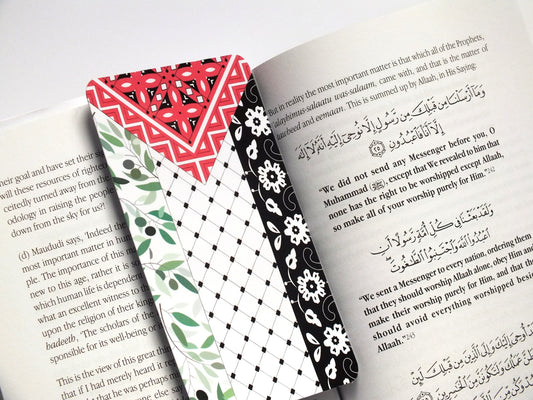 heir goal and have set their s
will these resources of right
ceitedly turned away from the
odology in raising the people
down from the sky for us?!
(d) Maududi says, 'Indeed the
most important matter in hum
ple. The importance of this ma
new to this age, rather it is
which human life is dependent
what an excellent witness to
upon the religion of their king
badeeth, 'The scholars of the
sponsible for its well-being or
This is the view of this great
that if I had merely heard it re
that he was perhaps
else
But in reality the most important matter is that which all of the Prophets,
alayhimus-salaatu was-salaam, came with, and that is the matter of
tawheed and eemaan. This is summed up by Allaah, in His Saying:
وَمَا أَرْسَلْنَا مِن قَبْلِكَ مِن رَّسُولٍ إِلَّا نُوحِي إِلَيْهِ أَنَّهُ لَا إِلَٰهَ
إِلَّا أَنَا فَاعْبُدُونِ
"We did not send any Messenger before you, O
Muhammad (ﷺ), except that We revealed to him that
none has the right to be worshipped except Allaah,
so make all of your worship purely for Him."242
وَلَقَدْ بَعَثْنَا فِي كُلِّ أُمَّةٍ رَّسُولًا أَنِ
اعْبُدُوا اللَّهَ وَاجْتَنِبُوا الطَّاغُوتَ
"We sent a Messenger to every nation, ordering them
that they should worship Allaah alone, obey Him and
make their worship purely for Him, and that they
should avoid everything worshipped beside
Allaah."243
وَلَقَدْ أُوحِيَ إِلَيْكَ وَإِلَى الَّذِينَ مِن قَبْلِكَ